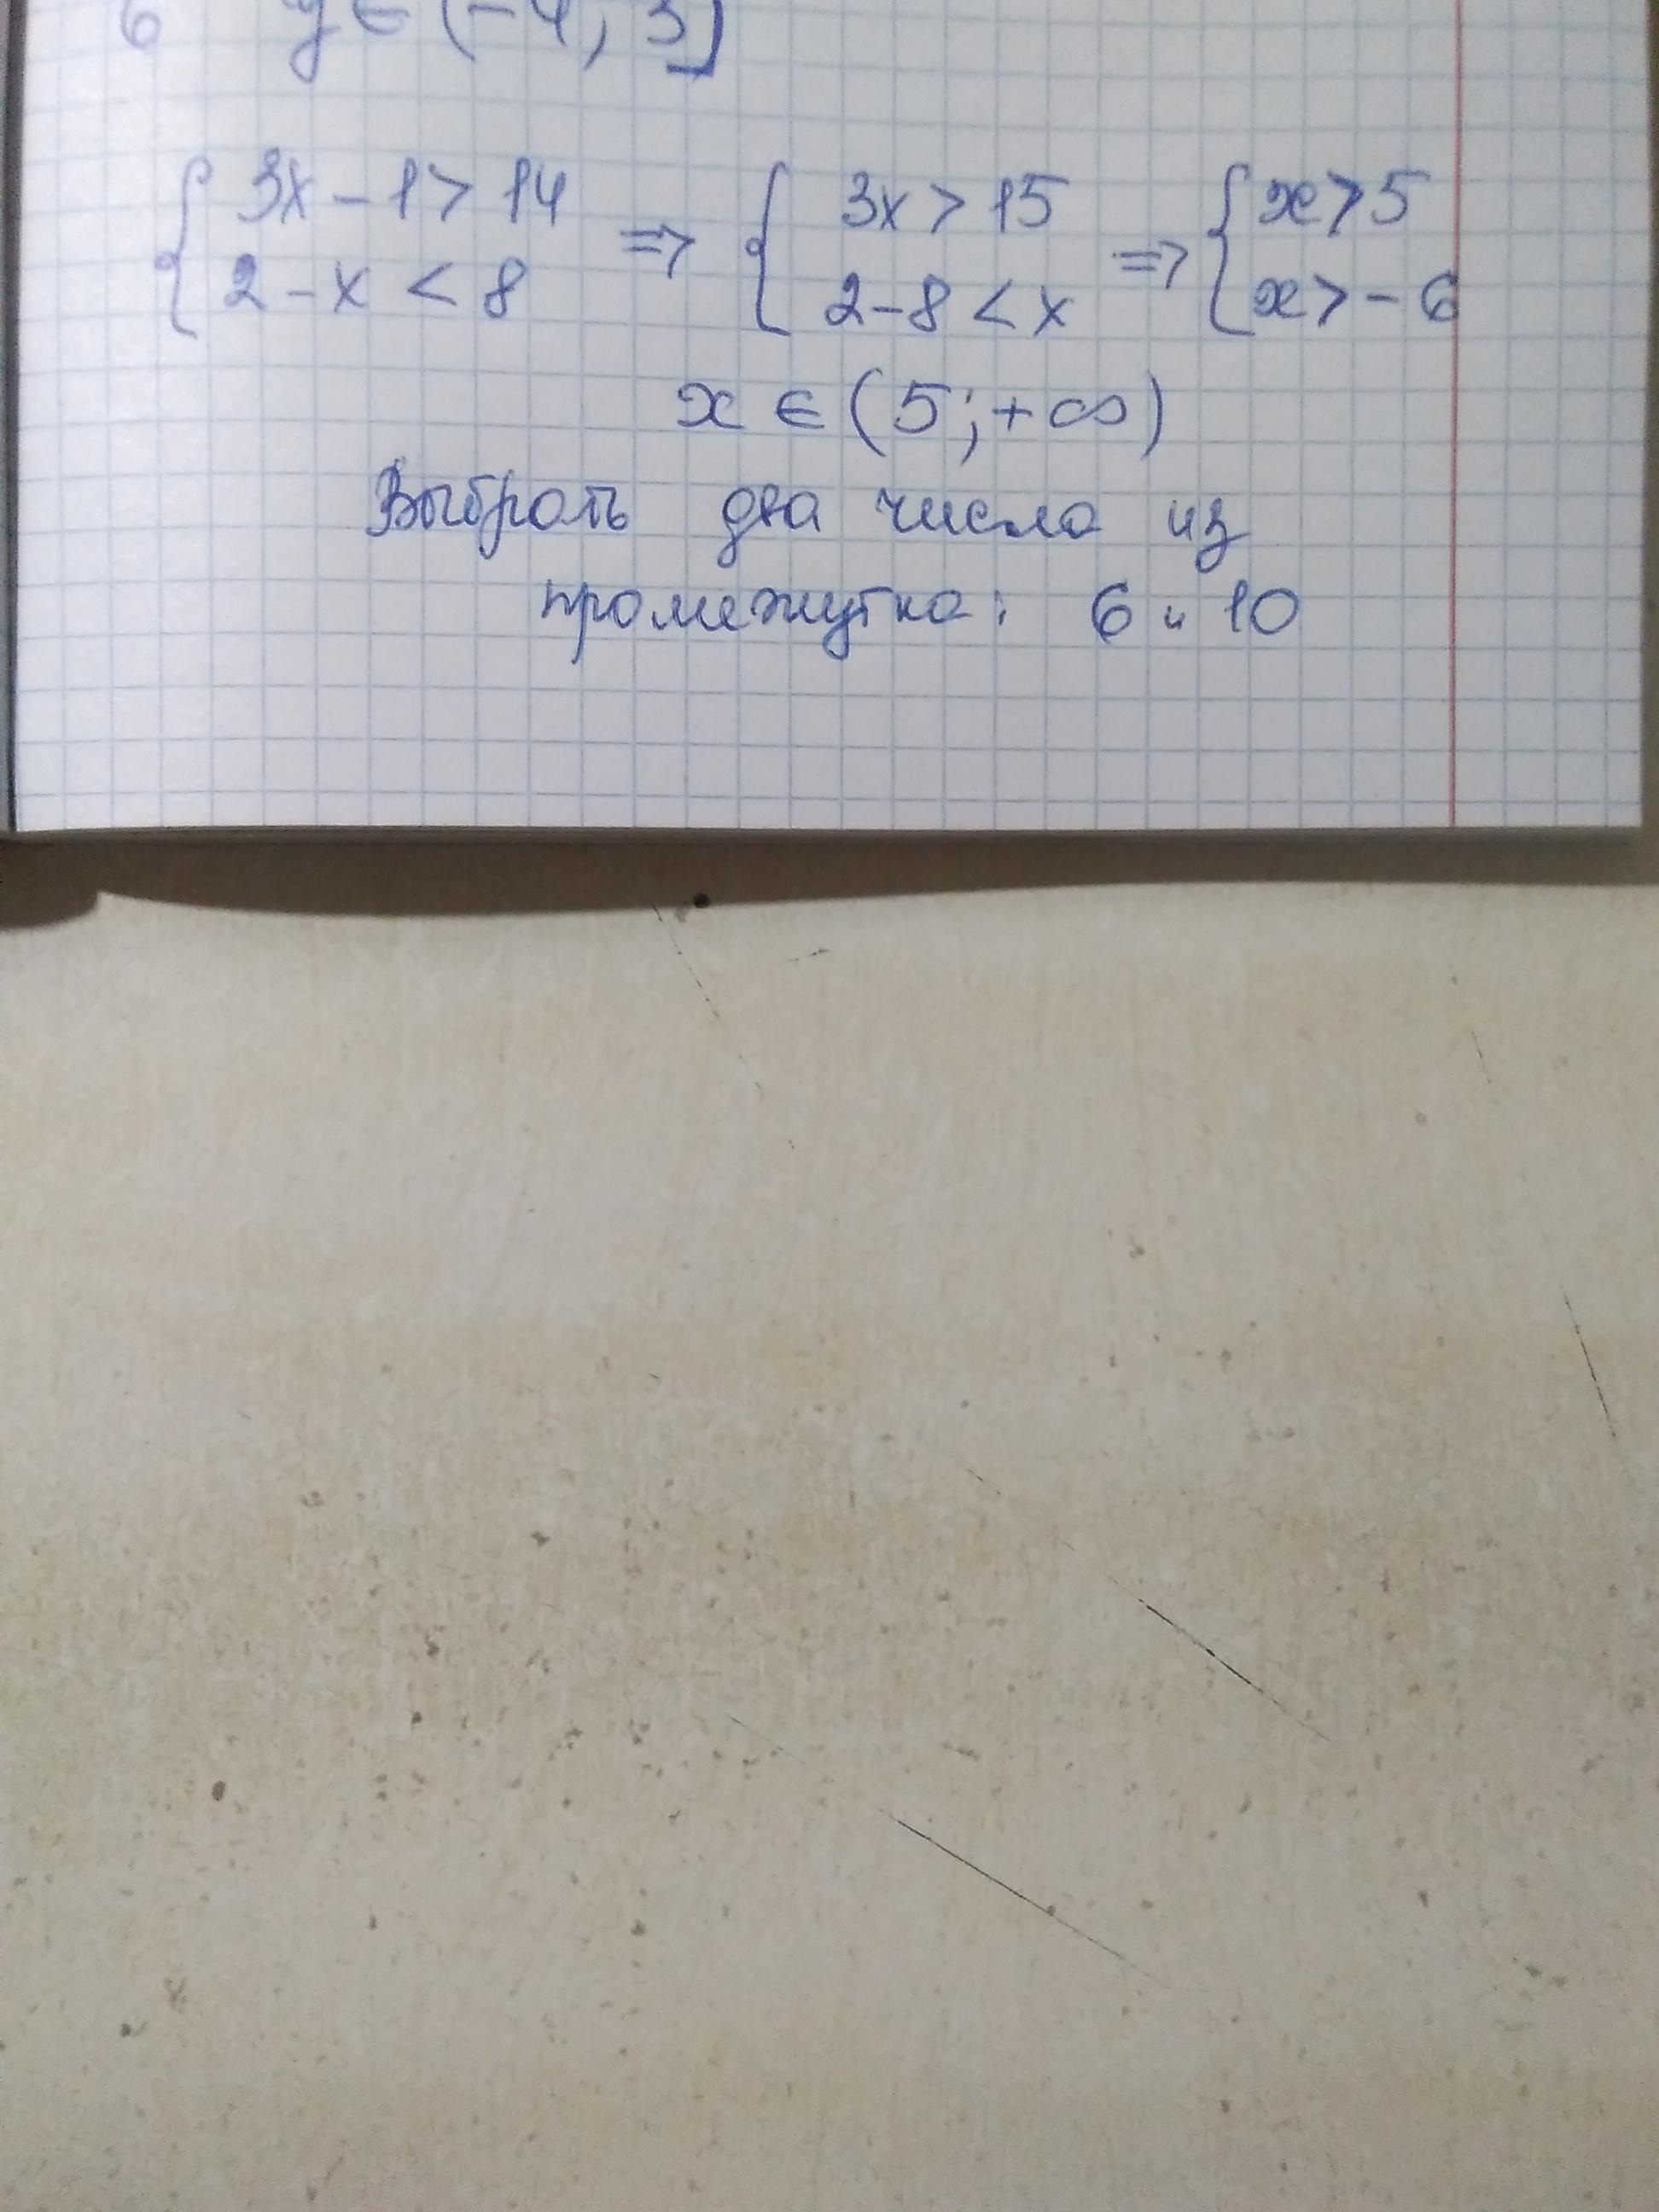 6 y ∈ (-4; 3]
{ 3x - 1 > 14 => { 3x > 15 => { x > 5
{ 2 - x < 8 { 2 - 8 < x { x > - 6
x ∈ (5; +∞)
Выбрать два числа из
промежутка: 6 и 10